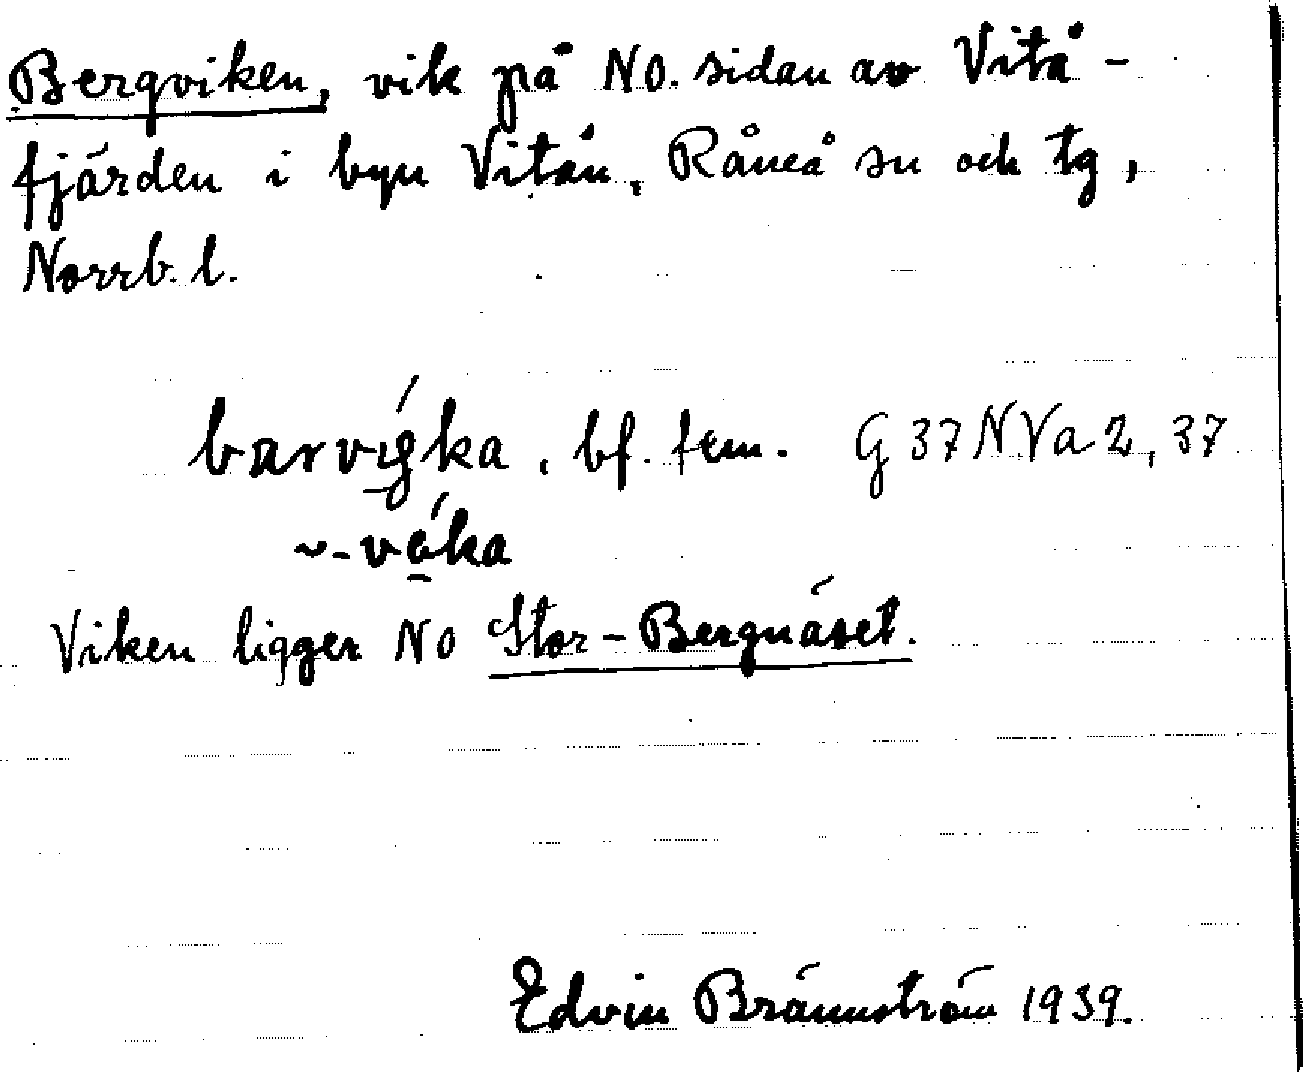 Bergviken, vik på NO. sidan av Vitå-
fjärden i byn Vitån, Råneå sn och tg,
Norrb. l.
barvíg̣ka. bf. fem. G 37 N Va 2, 37
~-véka
Viken ligger NO Stor-Bergnäset.
Edvin Brännström 1939.